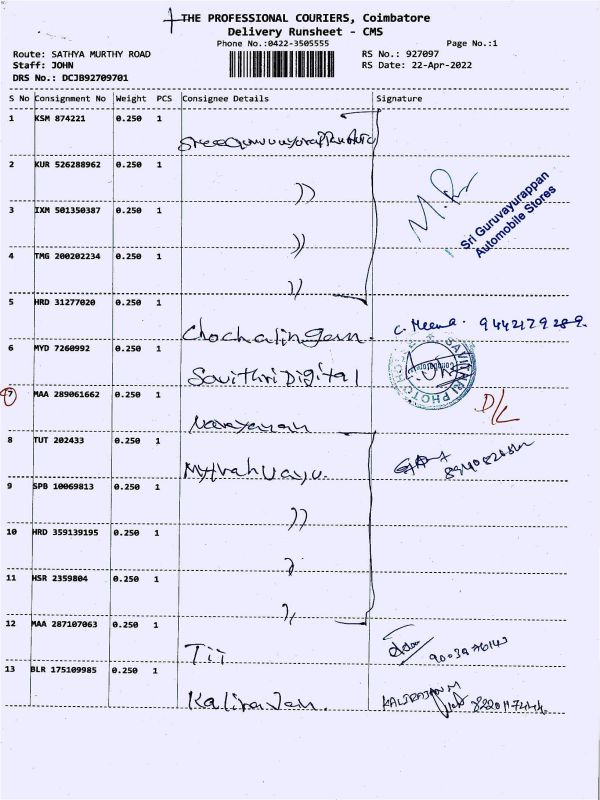 THE PROFESSIONAL COURIERS, Coimbatore
Delivery Runsheet - CMS
Phone No.:0422-3505555
Page No.:1
Route: SATHYA MURTHY ROAD
RS No.: 927097
Staff: JOHN
RS Date: 22-Apr-2022
DRS No.: DCJB92709701
S No Consignment No Weight PCS Consignee Details Signature
1 KSM 874221 0.250 1
2 KUR 526288962 0.250 1 ))
3 IXM 501350387 0.250 1 ))
Sri Guruvayurappan
Automobile Stores
4 TMG 200202234 0.250 1 ))
5 HRD 31277020 0.250 1 Chochalingam. C. Meena. 9442179289.
6 MYD 7260992 0.250 1 Savithri Digital
SAVITARI PHOTO
7 MAA 289061662 0.250 1 Narayanan D/L
8 TUT 202433 0.250 1
9 SPB 10069813 0.250 1 ))
10 HRD 359139195 0.250 1
11 HSR 2359804 0.250 1
12 MAA 287107063 0.250 1 Tii
13 BLR 175109985 0.250 1 Kalirajan. KALIRAJAN M